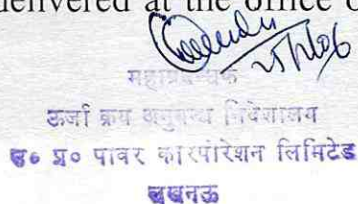 delivered at the office o
महाप्रबन्धक
ऊर्जा क्रय अनुबन्ध निदेशालय
उ० प्र० पावर कारपोरेशन लिमिटेड
लखनऊ